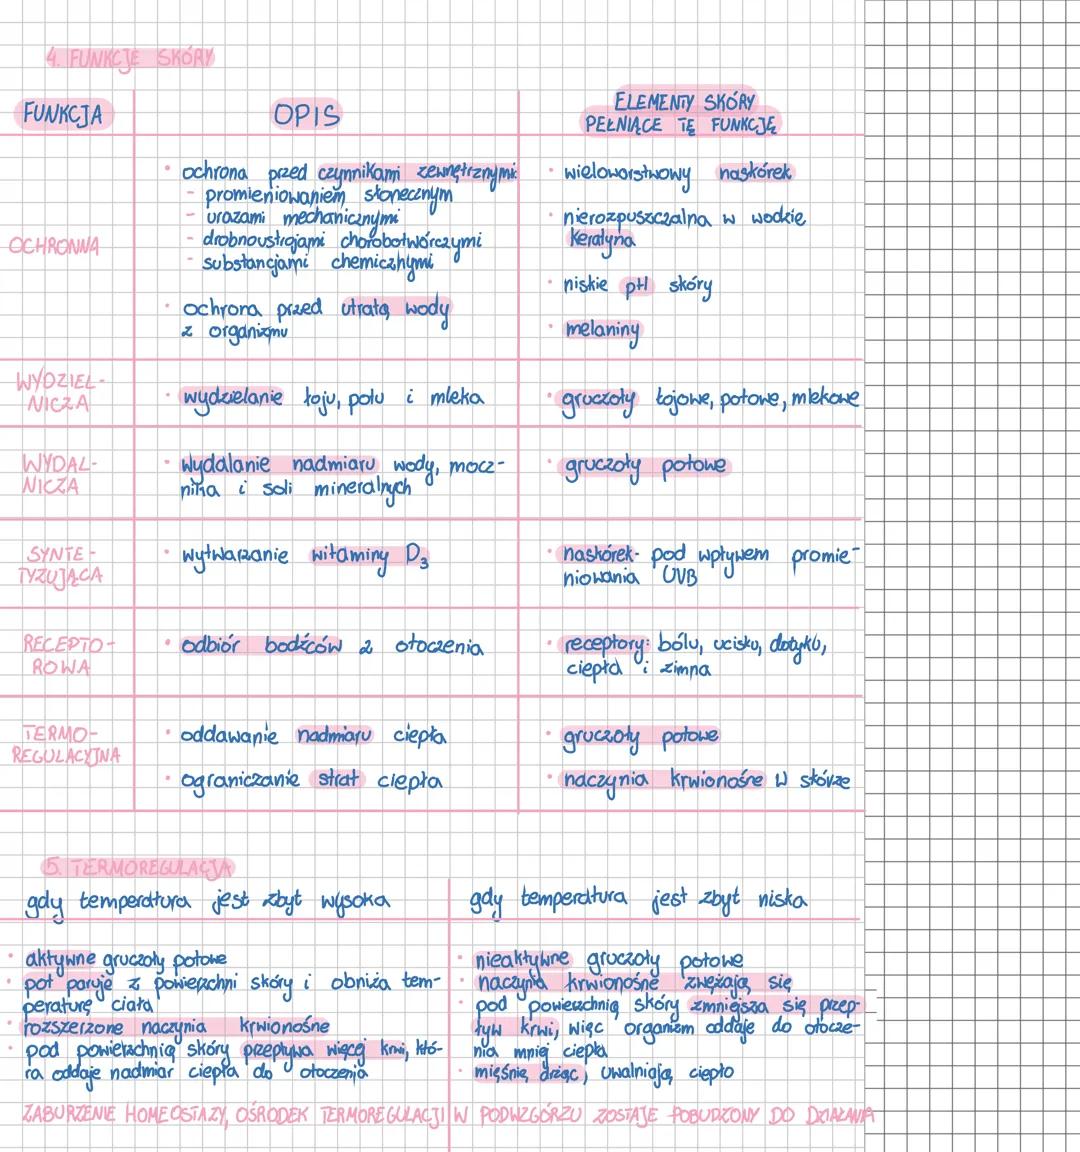 4. FUNKCJE SKÓRY
FUNKCJA
OPIS
ELEMENTY SKÓRY
PEŁNIĄCE TĘ FUNKCJĘ
OCHRONNA
• ochrona przed czynnikami zewnętrznymi:
- promieniowaniem słonecznym
- urazami mechanicznymi
- drobnoustrojami chorobotwórczymi
- substancjami chemicznymi
• ochrona przed utratą wody
z organizmu
• wielowarstwowy naskórek
• nierozpuszczalna w wodzie
keratyna
• niskie pH skóry
• melaniny
WYDZIEL-
NICZA
• wydzielanie łoju, potu i mleka
• gruczoły łojowe, potowe, mlekowe
WYDAL-
NICZA
• wydalanie nadmiaru wody, mocz-
nika i soli mineralnych
• gruczoły potowe
SYNTE-
TYZUJĄCA
• wytwarzanie witaminy D3
• naskórek- pod wpływem promie-
niowania UVB
RECEPTO-
ROWA
• odbiór bodźców z otoczenia
• receptory: bólu, ucisku, dotyku,
ciepła i zimna
TERMO-
REGULACYJNA
• oddawanie nadmiaru ciepła
• ograniczanie strat ciepła
• gruczoły potowe
• naczynia krwionośne w skórze
5. TERMOREGULACJA
gdy temperatura jest zbyt wysoka
• aktywne gruczoły potowe
• pot paruje z powierzchni skóry i obniża tem-
peraturę ciała
• rozszerzone naczynia krwionośne
• pod powierzchnią skóry przepływa więcej krwi, któ-
ra oddaje nadmiar ciepła do otoczenia
gdy temperatura jest zbyt niska
• nieaktywne gruczoły potowe
• naczynia krwionośne zwężają się
• pod powierzchnią skóry zmniejsza się przep-
ływ krwi, więc organizm oddaje do otocze-
nia mniej ciepła
• mięśnie drżąc, uwalniają ciepło
ZABURZENIE HOMEOSTAZY, OŚRODEK TERMOREGULACJI W PODWZGÓRZU ZOSTAJE POBUDZONY DO DZIAŁANIA